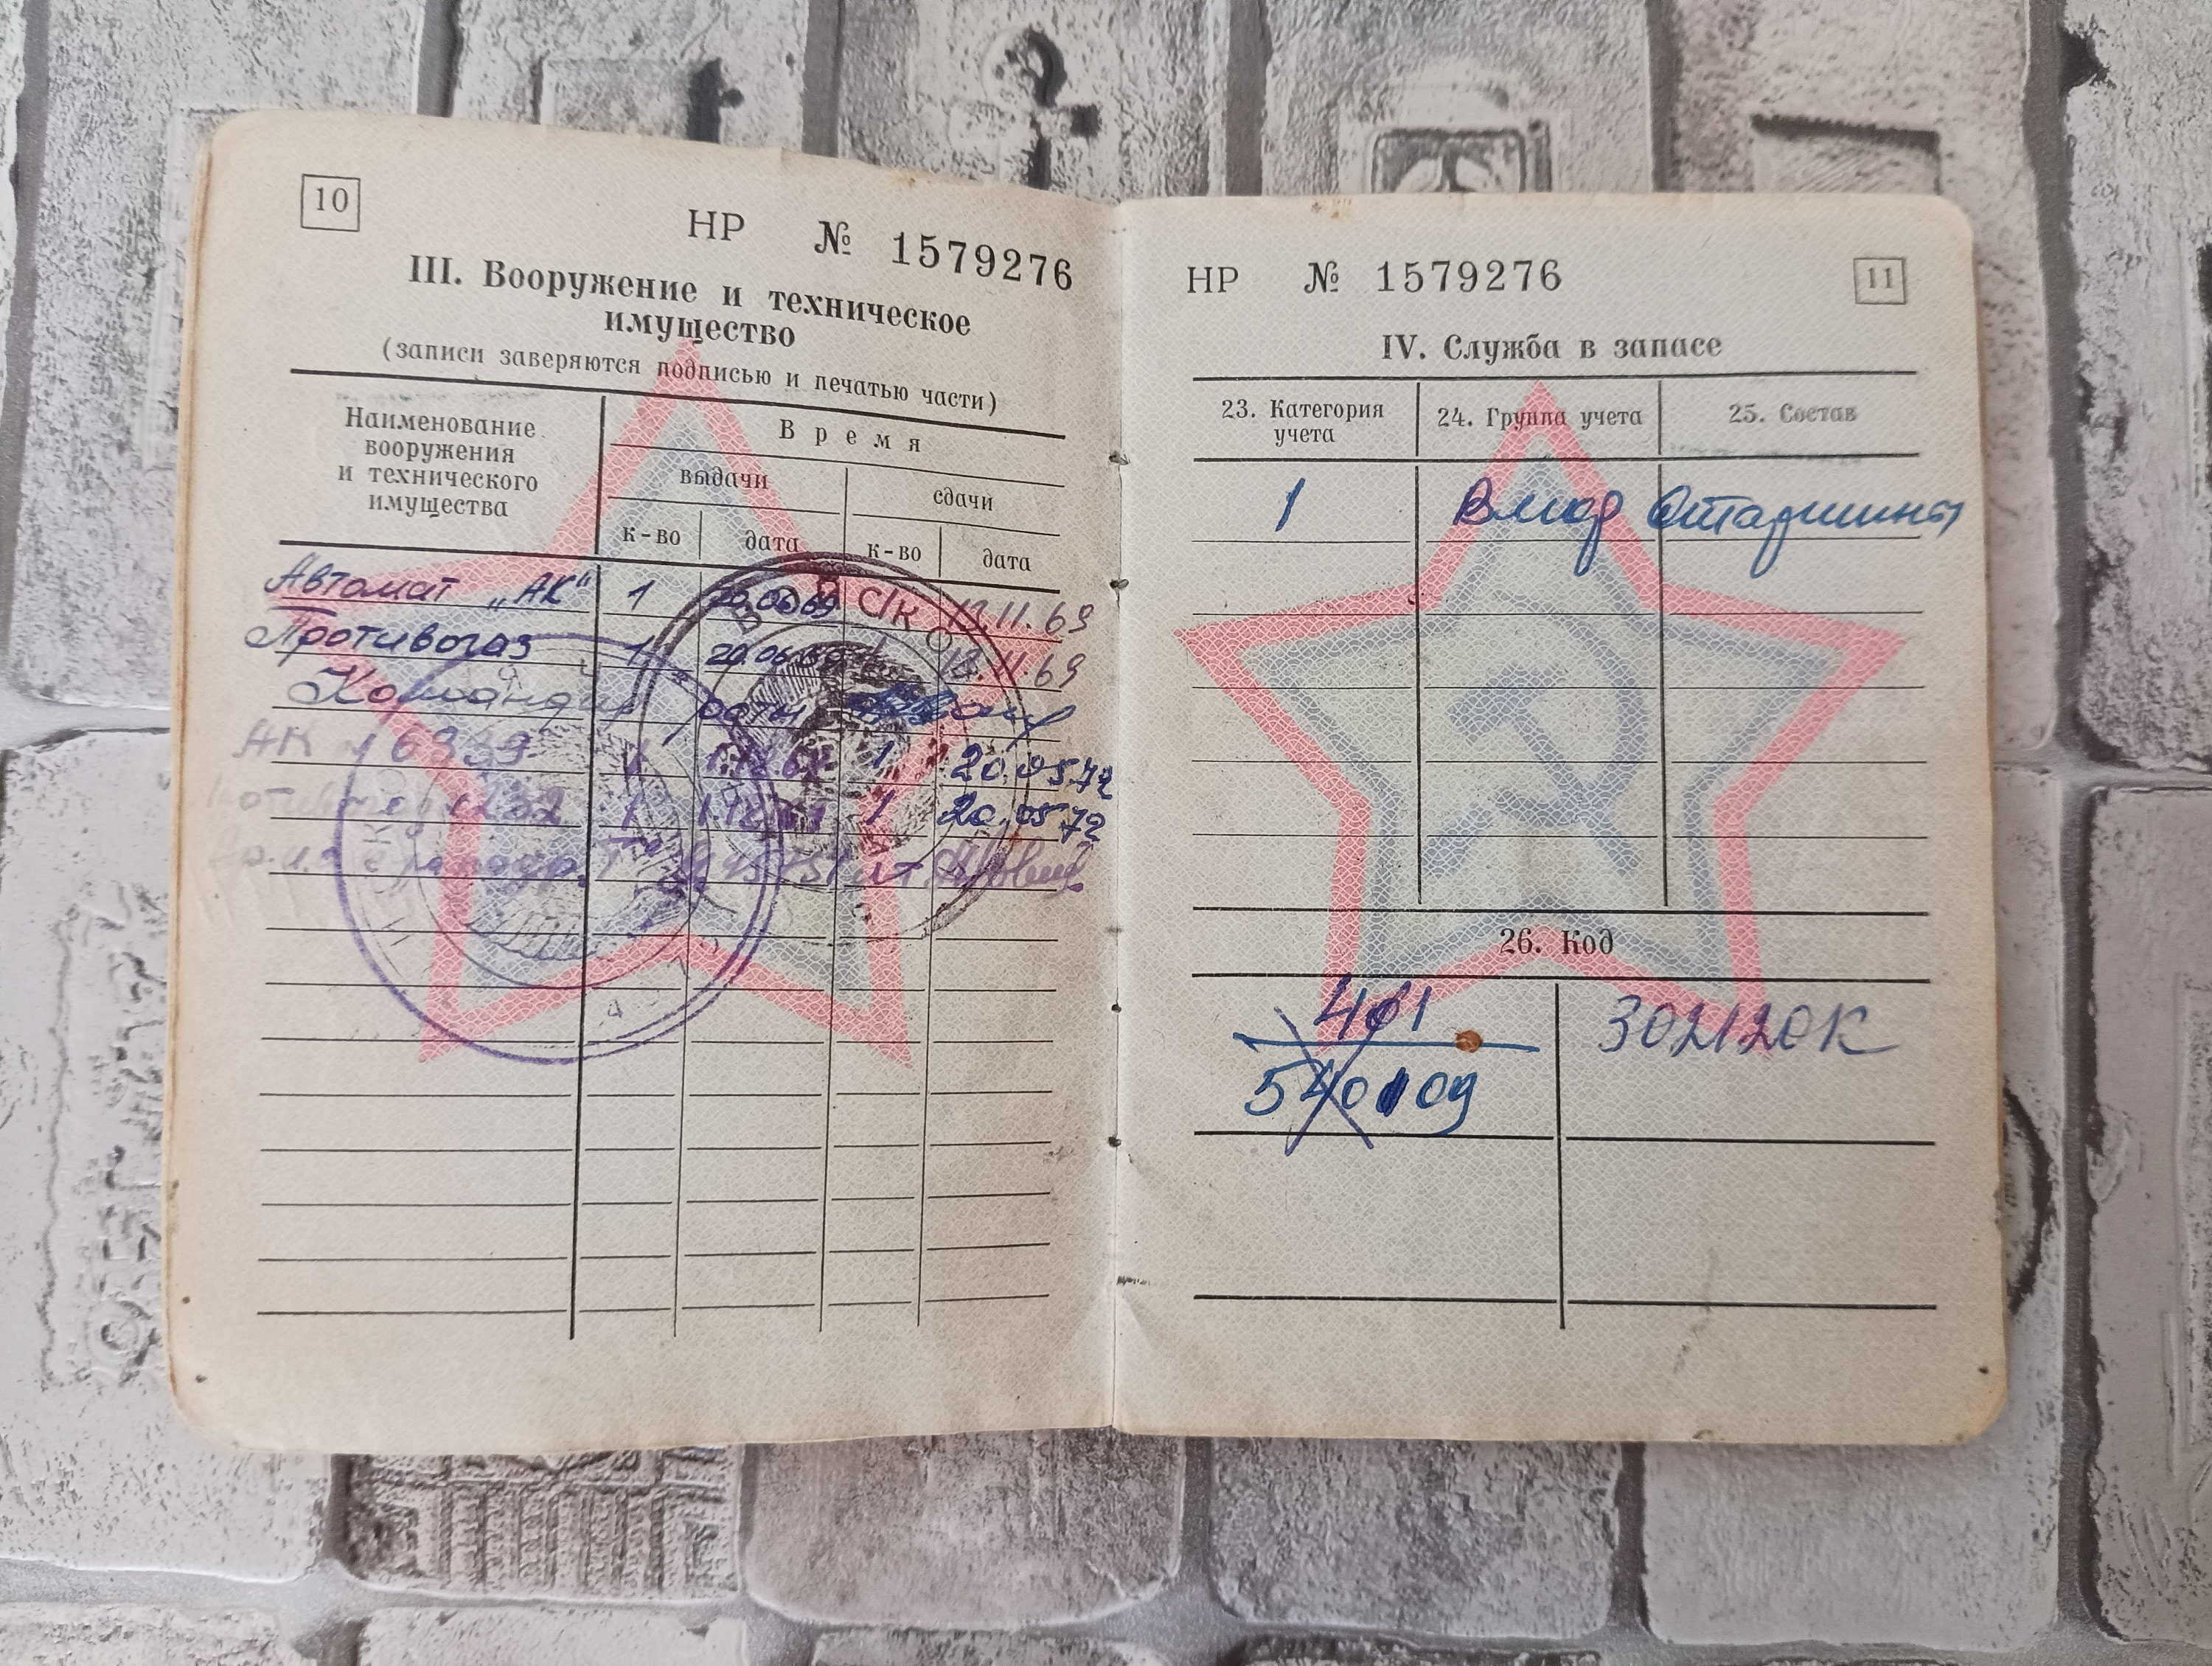 10
НР № 1579276
III. Вооружение и техническое
имущество
(записи заверяются подписью и печатью части)
Наименование
вооружения
и технического
имущества
Время
выдачи
сдачи
к-во
дата
к-во
дата
Автомат „АК“ 1 20.06.69 12.11.69
Противогаз 1 20.06.69 1 12.11.69
Командир роты
АК 6939 1 1 20.05.72
1232 1 1.12 1 20.05.72
НР № 1579276
11
IV. Служба в запасе
23. Категория
учета
24. Группа учета
25. Состав
1
Старшины
26. Код
401
302120К